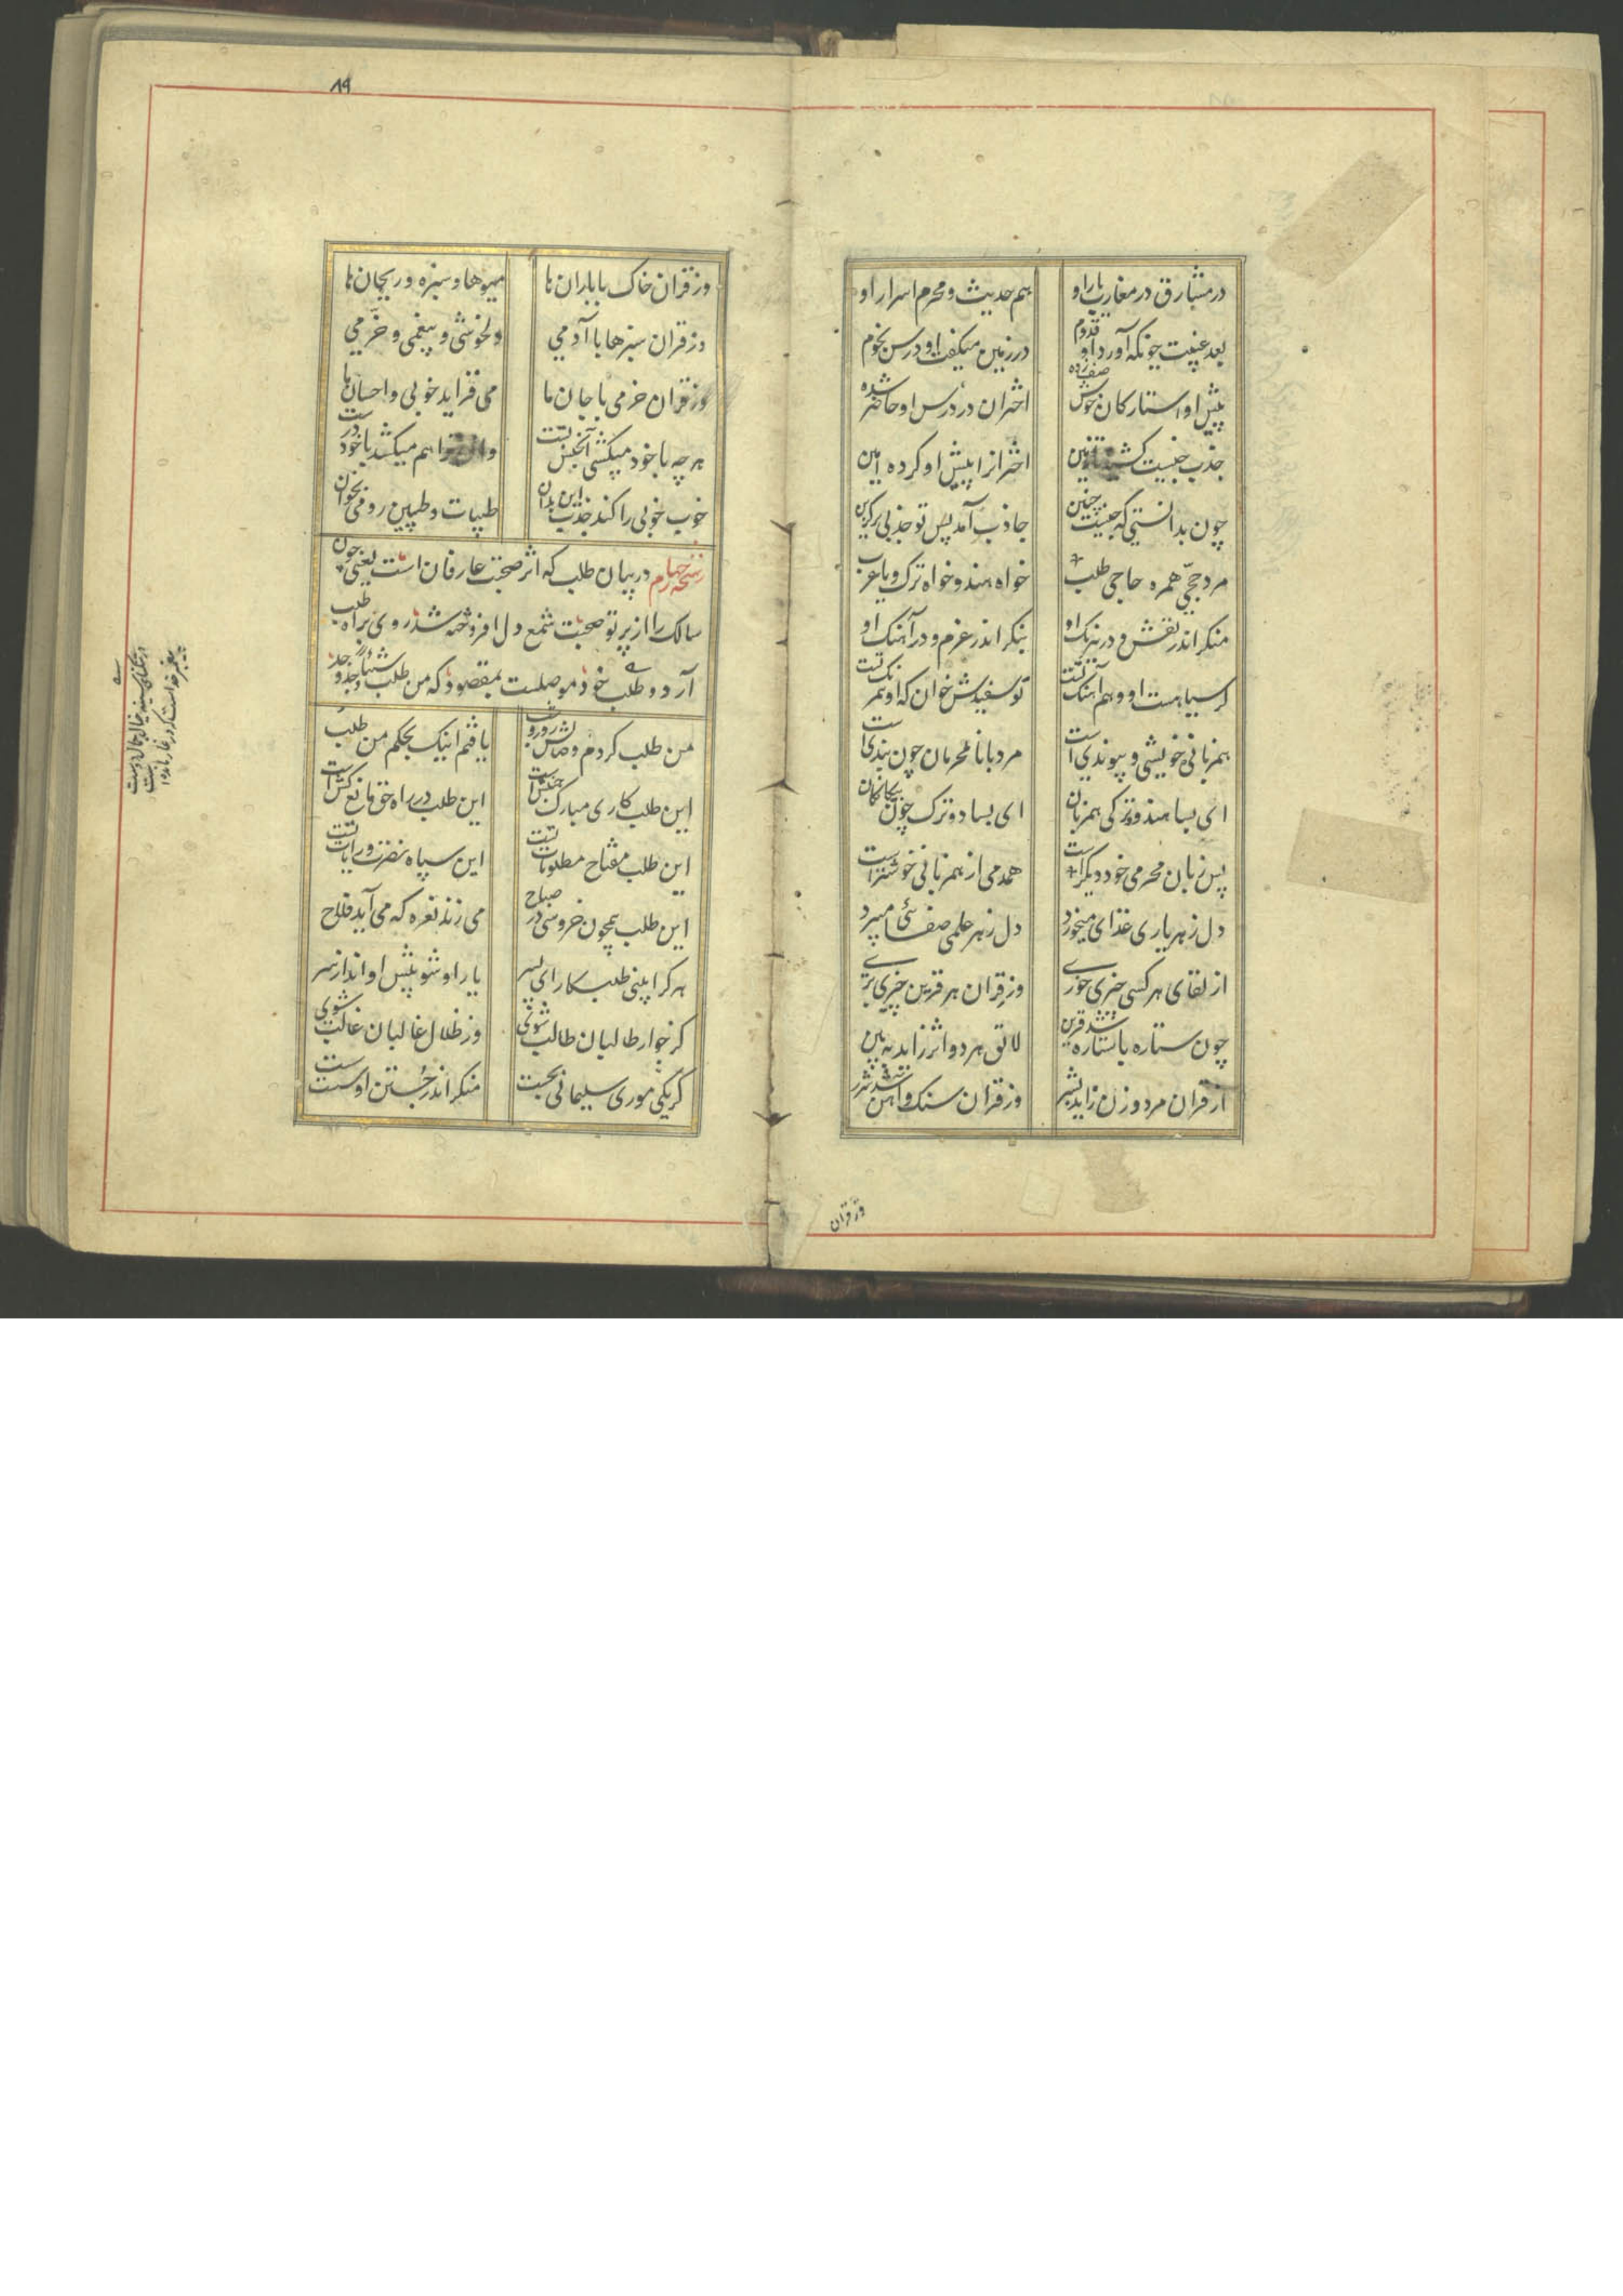 در مشارق در مغارب یار او
هم حدیث و محرم اسرار او
بعد غیبت چونکه آورد او قدوم
در زمین میکفت او درس نجوم
پیش او استارکان خوش صف زده
اختران در درس او حاضر شده
جذب جنسیت کشیده تا زمین
اخترانرا پیش او کرده مبین
چون بدانستی که جنسیت چنین
جاذب آمد پس تو جذبی برکزین
مرد حجی همره حاجی طلب
خواه هندو خواه ترک و یا عرب
منکر اندر نقش و در رنک او
بنکر اندر عزم و در آهنک او
کر سیاهست او و هم آهنک تست
تو سفیدش خوان که او همرنک تست
همزبانی خویشی و پیوندی است
مرد با نامحرمان چون بندی است
ای بسا هندو و ترکی همزبان
ای بسا دو ترک چون بیکانکان
پس زبان محرمی خود دیکر است
همدمی از همزبانی خوشتر است
دل ز هر یاری غذای میخورد
دل ز هر علمی صفائی میبرد
از لقای هر کسی چیزی خوری
وز قران هر قرین چیزی بری
چون ستاره با ستاره شد قرین
لائق هر دو اثر زاید یقین
از قران مرد و زن زاید بشر
وز قران سنک و آهن شد شرر
وز قران
۸۹
وز قران خاک با باران ها
میوها و سبزه و ریحان ها
وز قران سبزها با آدمی
دلخوشی و بیغمی و خرمی
وز قران خرمی با جان ما
می فزاید خوبی و احسان ما
هر چه با خود میکشی آن جنس تست
هم میکشد با خود درست
خوب خوبی را کند جذب این بدان
طیبات و طیبین رو می بخوان
رشحه چهارم در بیان طلب که اثر صحبت عارفان است یعنی چون
سالک را از پرتو صحبت شمع دل افروخته شد روی براه طلب
آرد و طلب خود موصلست بمقصود که من طلب شیئا و جد وجد
من طلب کردم وصالش روز و شب
یافتم اینک بحکم من طلب
این طلب کاری مبارک جنبش است
این طلب در راه حق مانع کش است
این طلب مفتاح مطلوبات تست
این سپاه نصرت و رایات تست
این طلب همچون خروسی در صباح
می زند نعره که می آید فلاح
هر کرا بینی طلبکار ای پسر
یار او شو پیش او انداز سر
کز جوار طالبان طالب شوی
وز ظلال غالبان غالب شوی
کر یکی موری سلیمانی بجست
منکر اندر جستن او سست سست